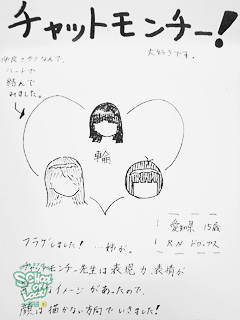 チャットモンチー!
大好きです。
仲良しサンなんで、
ハートで
結んで
みました。
輪
愛知県 15歳
R.N
フラゲしました! …姉が。
チャットモンチー先生は表現力、表情が
イメージがあったので、
顔は描かない方向でいきました!
SCHOOL OF LOCK!